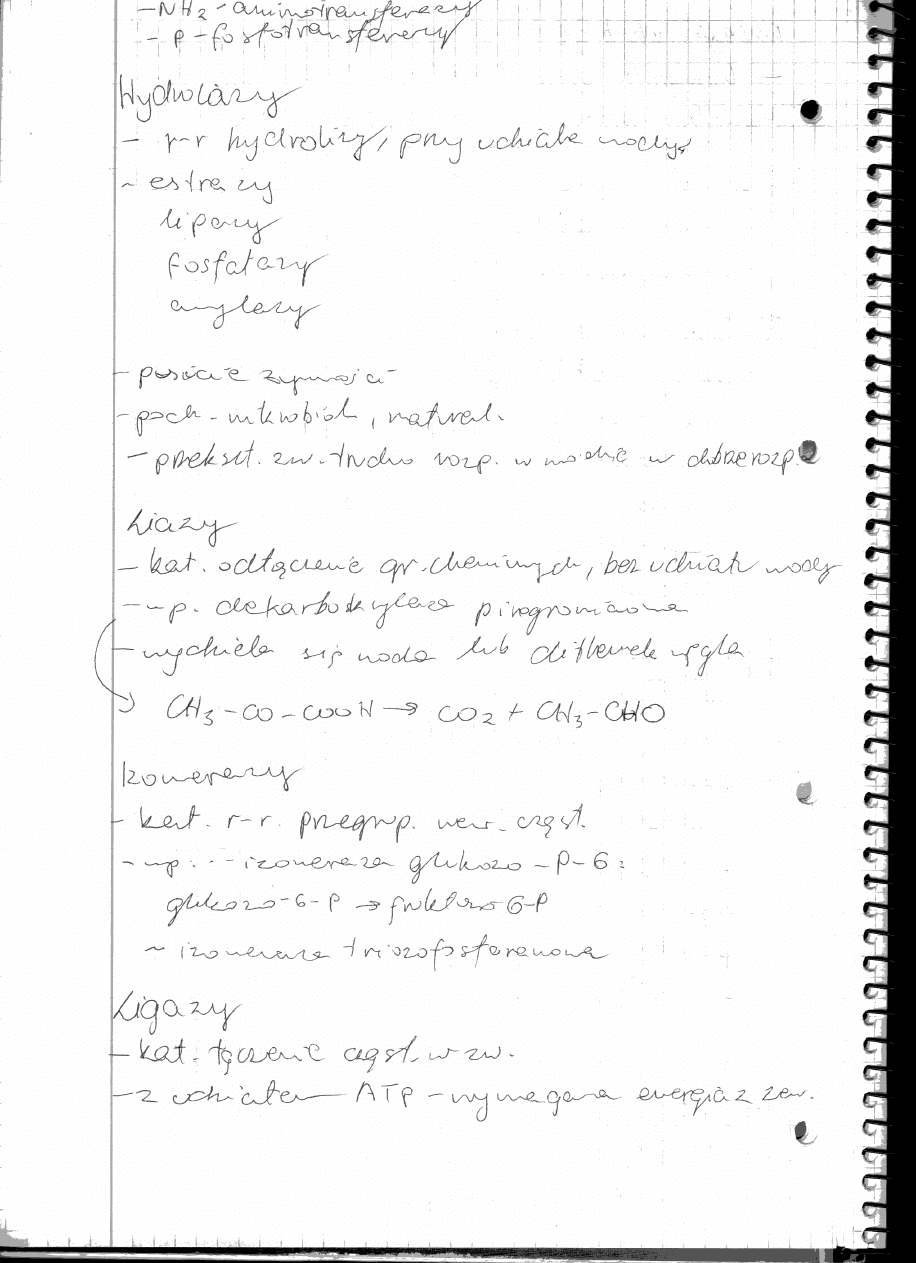 - NH2 - aminotransferazy
- P - fosfotransferazy
Hydrolazy
- r-r hydrolizy, przy udziale wody
- estrazy
lipazy
fosfatazy
amylazy
- żywności
- poch. mikrobiol, natural.
- przekszt. zw. trudno rozp. w wodzie w dobrze rozp.
Liazy
- kat. odłączenie gr. chemicznych, bez udziału wody
- np. dekarboksylaza pirogronianowa
- wydziela się woda lub ditlenek węgla
CH3-CO-COOH → CO2 + CH3-CHO
Izomerazy
- kat. r-r. przegrup. wew. cząst.
- np. izomeraza glukozo-P-6:
glukozo-6-P → fruktozo 6-P
~ izomeraza triozofosforanowa
Ligazy
- kat. łączenie cząst. w zw.
- z udziałem ATP - wymagana energia z zew.